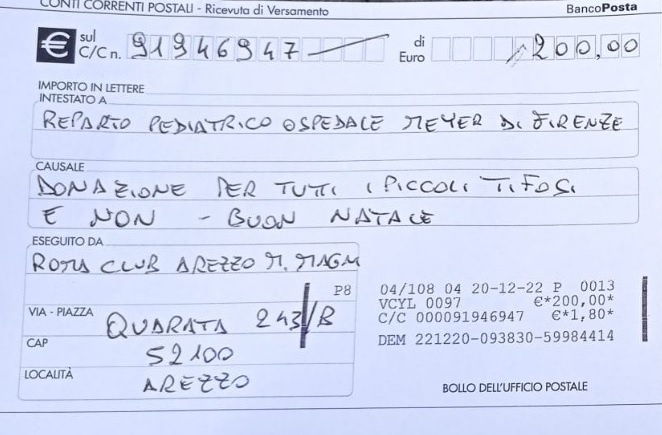 CONTI CORRENTI POSTALI - Ricevuta di Versamento BancoPosta
€ sul C/C n. 91946947 di Euro 200,00
IMPORTO IN LETTERE
INTESTATO A
REPARTO PEDIATRICO OSPEDALE MEYER DI FIRENZE
CAUSALE
DONAZIONE PER TUTTI I PICCOLI TIFOSI
E NON - BUON NATALE
ESEGUITO DA
ROMA CLUB AREZZO M. MAGM
P8
VIA - PIAZZA QUARATA 243/B
CAP 52100
LOCALITÀ AREZZO
04/108 04 20-12-22 P 0013
VCYL 0097 €*200,00*
C/C 000091946947 €*1,80*
DEM 221220-093830-59984414
BOLLO DELL'UFFICIO POSTALE